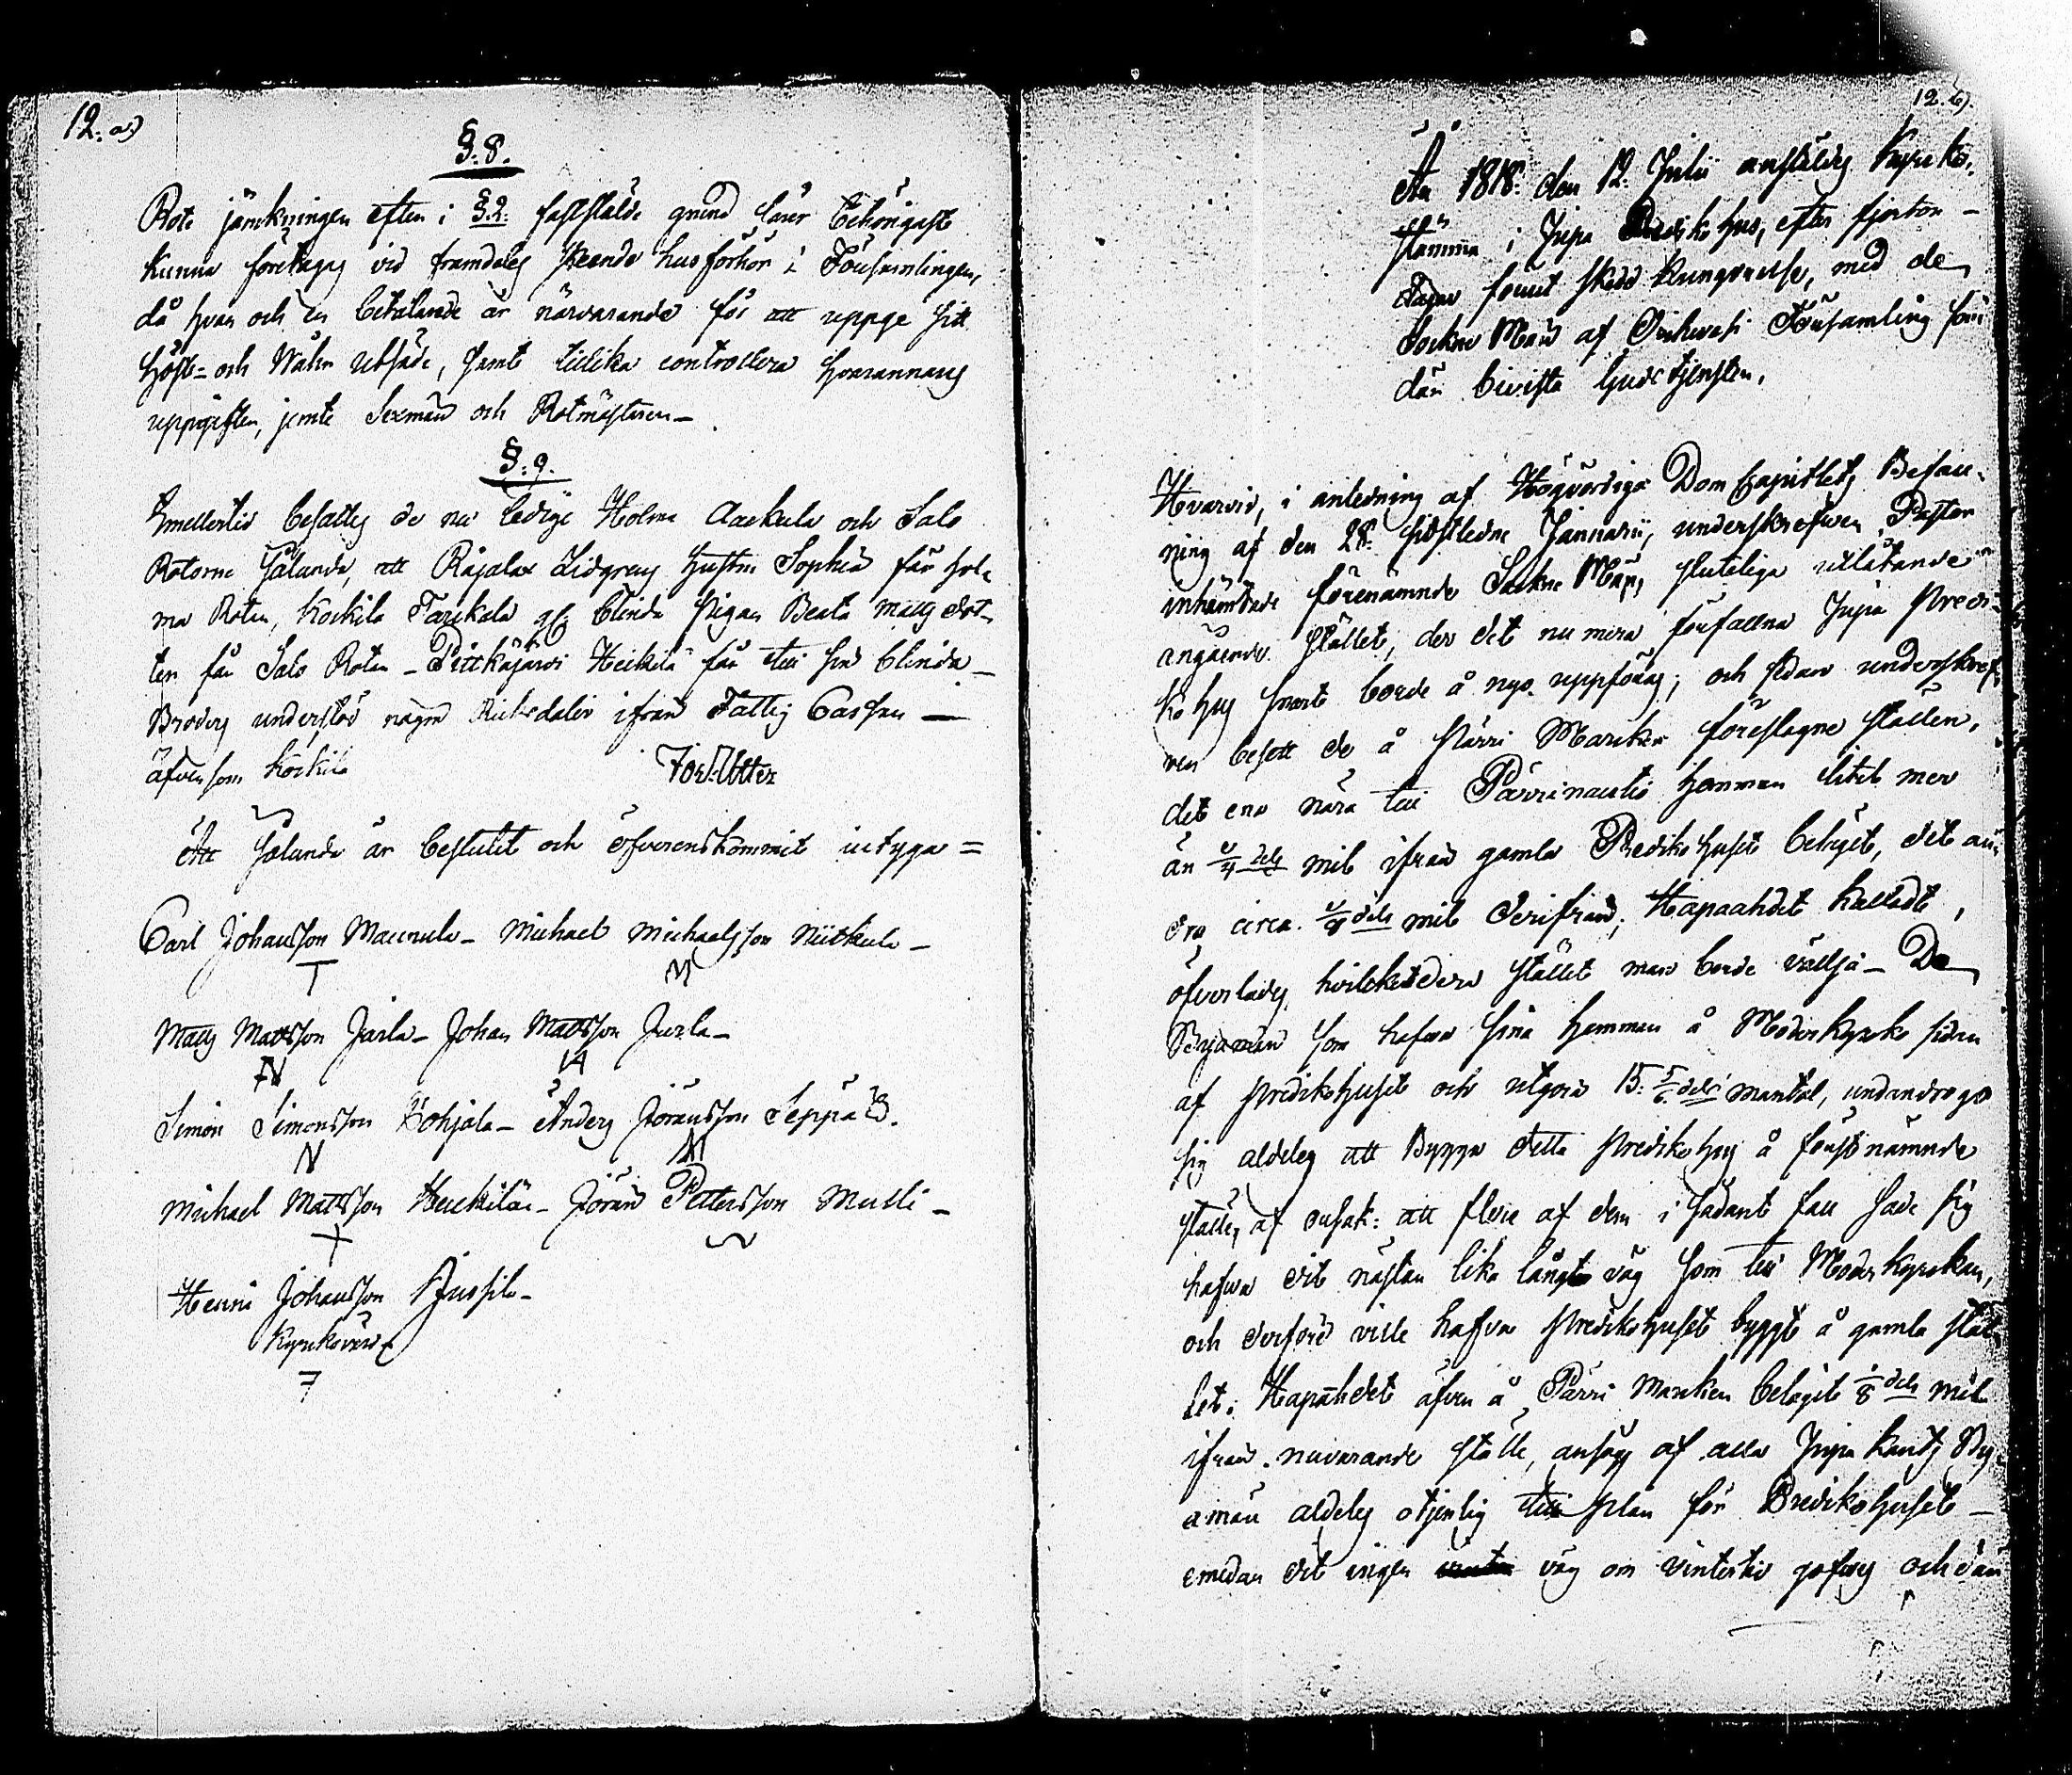 12. a)
§. 8.
Rote jämkningen efter i §. 2. fastställde grund lärer behörigast
kunna företagas vid framdeles skeende husförhör i Församlingen,
då hvar och en betalande är närvarande för att uppge sitt
höst- och Wåhr utsäde, samt tillika controllera hvarannans
uppgifter, jemte Sexmän och Rotmästaren _
§. 9.
Imellertid besattes de nu ledige Holma Aaekula och Salo
Rotorne sålunda, att Rajalax Lidgrens hustru Sophia får Hol-
ma Roten, Kockila Tarikala blinda pigan Beata Matts dot-
ter får Salo Roten _ Pittkäjärvi Heikilä får till sin blinda _
Broders understöd någre Riksdaler ifrån Fattig Cassan _
äfvensom Kockila
Att sålunda är beslutit och öfverenskommit intyga =
Carl Johansson Maunula _ Michael Michaelsson Niitkula _
Matts Mattsson Jarla _ Johan Mattsson Jurla _
Simon Simonsson Kohjala _ Anders Jöransson Seppä
Michael Mattsson Heickilä _ Jöran Pettersson Mulli _
Henric Johansson Jussila _
Kyrkovärd
12. b).
År 1818. den 12. Julii anstäldes Kyrko-
stämma i Jupa Predikohus, efter fjorton _
dagar förut skedd kungörelse, med de
Sockne Män af Församling som
där bivista Gudstjensten.
Hvarvid, i anledning af Högvördiga Dom Capitlets Befall-
ning af den 28. sidstledne Januarii, underskrefven Pastor
inhämtade förenämnde Sockne Mäns sluteliga utlåtande
angående stället, der det nu mera förfallna Jupa Predi-
ko hus snart borde å nyo uppföras; och sedan underskref-
ven besett de å Pärri Marken föreslagne ställen,
det ena nära till Pärrinautio hemman litet mer
än 1/4 dels mil ifrån gamla Predikohuset beläget, det an-
dra circa 1/8 dels mil derifrån, Hapaahdet kalladt,
öfverlades hvilketdera stället man borde välja _ De
Byamän som hafva sina hemman å Moderkyrko sidan
af Predikohuset och utgöra 15. 5/6 dels mantal, undandrogo
sig aldeles att Bygga detta Predikohus å förstnämnde
ställe, af orsak: att flere af dem i sådant fall sade sig
hafva dit nästan lika långt väg som till Moderkyrkan,
och derföre ville hafva Predikohuset bygdt å gamla stäl-
let. Hapahdet äfven å Pärri Marken belägit 1/8 dels mil
ifrån nuvarande ställe, ansågs af alla Jupa kants By-
amän aldeles otjenlig till plan för Predikohuset _
emedan dit ingen väg om vintertid gofves och där